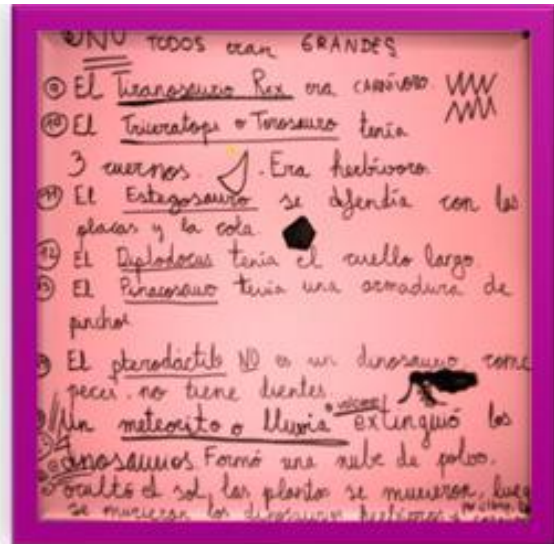 NO TODOS eran GRANDES
⑨ El Tiranosaurio Rex era CARNÍVORO.
⑩ El Triceratops o Torosauro tenía
3 cuernos. Era herbívoro.
⑪ El Estegosauro se defendía con las
placas y la cola.
⑫ El Diplodocus tenía el cuello largo.
⑬ El Pinacosauro tenía una armadura de
pinchos
El pterodáctilo NO es un dinosaurio, come
peces, no tiene dientes.
Un meteorito o lluvia extinguió los
dinosaurios. Formó una nube de polvo.
ocultó el sol, las plantas se murieron, luego
se murieron los dinosaurios herbívoros y